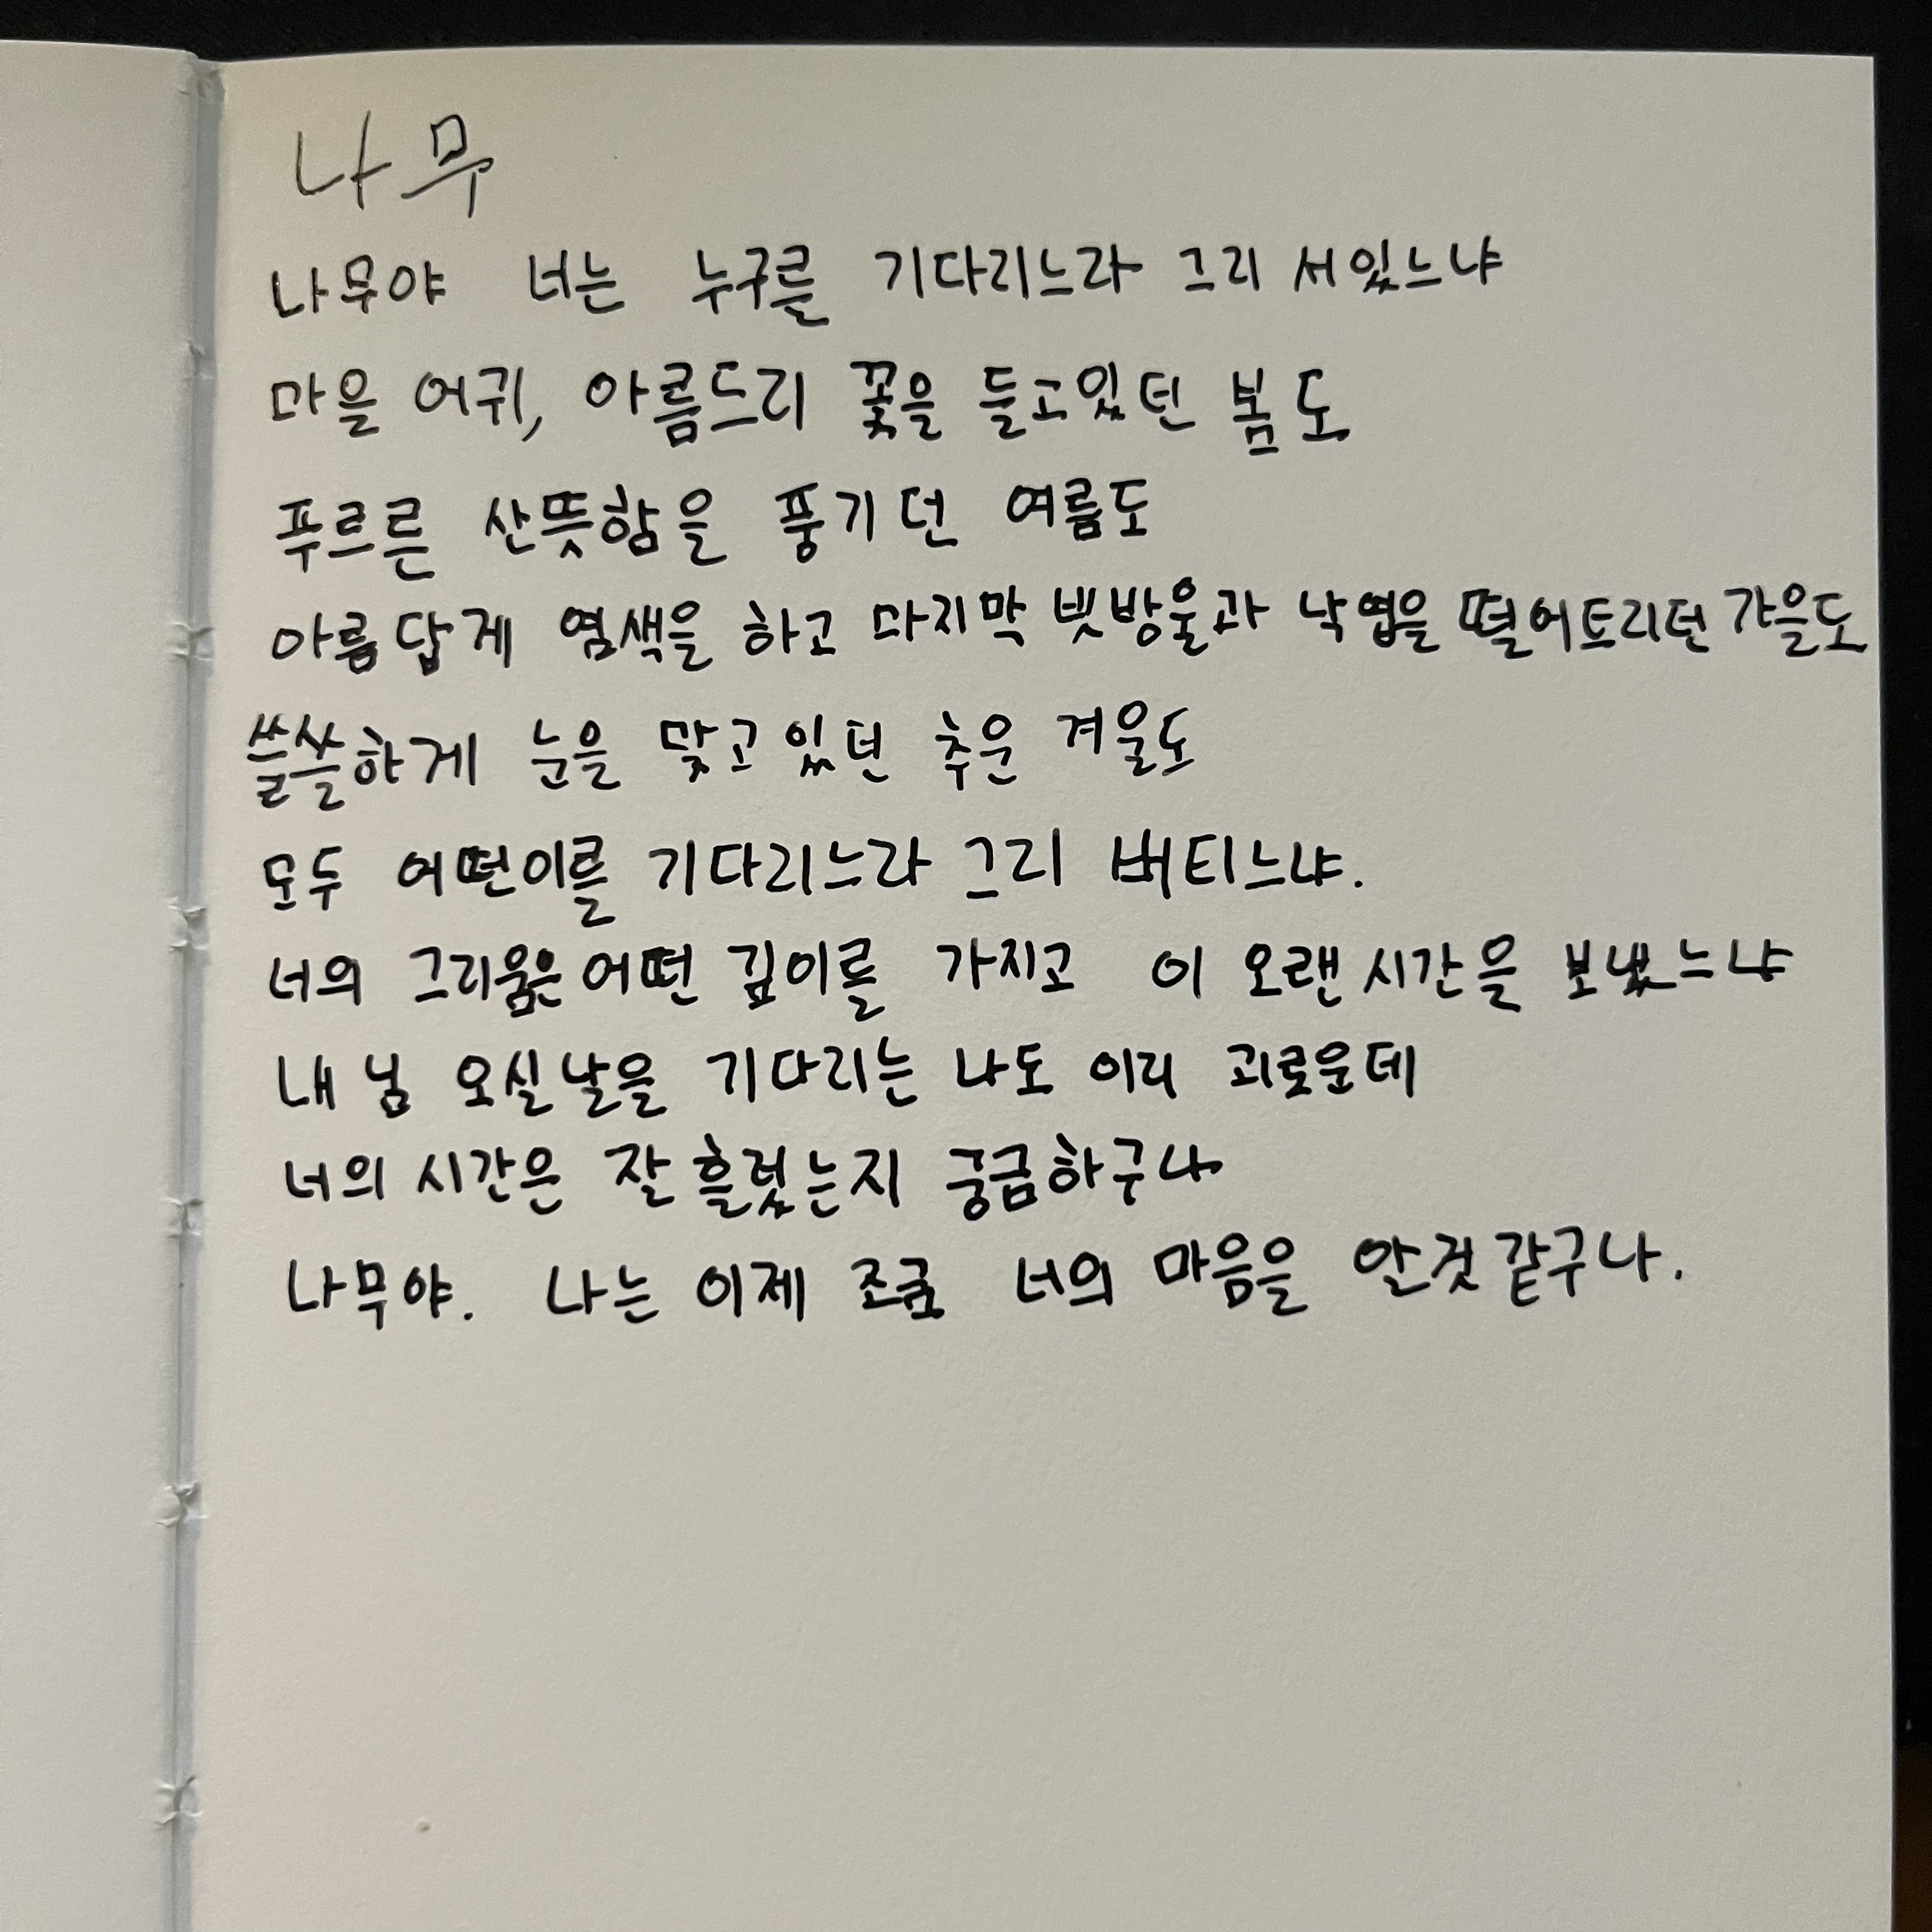 나무
나무야 너는 누구를 기다리느라 그리 서있느냐
마을 어귀, 아름드리 꽃을 들고있던 봄도
푸르른 산뜻함을 풍기던 여름도
아름답게 염색을 하고 마지막 빗방울과 낙엽을 떨어트리던 가을도
쓸쓸하게 눈을 맞고있던 추운 겨울도
모두 어떤이를 기다리느라 그리 버티느냐.
너의 그리움은 어떤 깊이를 가지고 이 오랜 시간을 보냈느냐
내 님 오실날을 기다리는 나도 이리 괴로운데
너의 시간은 잘 흘렀는지 궁금하구나
나무야. 나는 이제 조금 너의 마음을 안것 같구나.